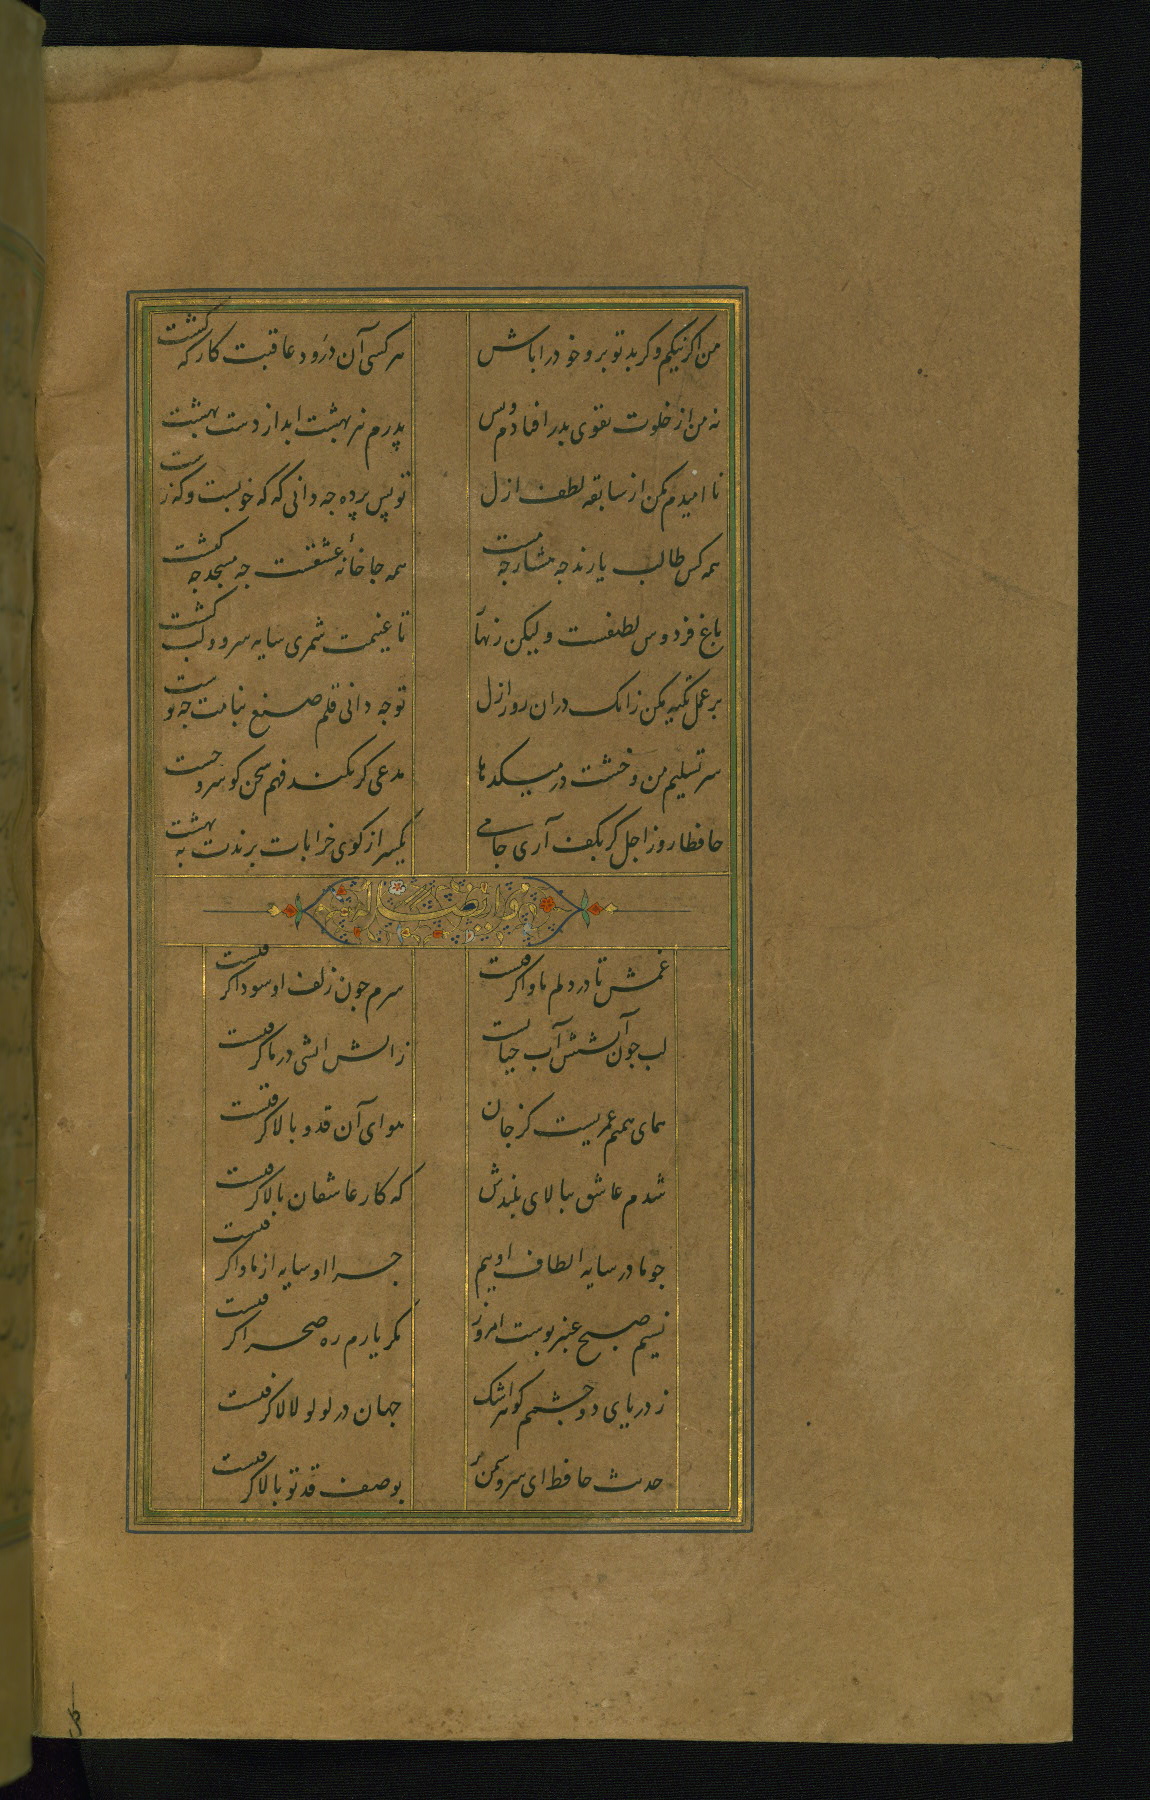 من اگر نیکم و کر بد تو برو خود را باش هر کسی آن درود عاقبت کار که کشت
نه من از خلوت تقوی بدر افتادم و بس پدرم نیز بهشت ابد از دست بهشت
نا امیدم مکن از سابقه لطف ازل تو پس پرده جه دانی که که خوبست و که زشت
همه کس طالب یارند جه هشیار جه مست همه جا خانهٔ عشقست جه مسجد جه کنشت
باغ فردوس لطیفست و لیکن زنهار تا غنیمت شمری سایه سرو و لب کشت
بر عمل تکیه مکن زانک دران روز ازل تو جه دانی قلم صنع بنامت جه نوشت
سر تسلیم من و خشت در میکدها مدعی کر نکند فهم سخن کو سر و خشت
حافظا روز اجل کر بکف آری جامی یکسر از کوی خرابات برندت به بهشت
و له ایضا
غمش تا در دلم ماوا کرفتست سرم جون زلف او سودا کرفتست
لب جون آتشش آب حیاتست زان آتش آتشی در ما کرفتست
همای همتم عمریست کز جان هوای آن قد و بالا کرفتست
شدم عاشق ببالای بلندش که کار عاشقان بالا کرفتست
جو ما در سایه الطاف اوییم جرا او سایه از ما وا کرفتست
نسیم صبح عنبر بوست امروز مکر یارم ره صحرا کرفتست
ز دریای دو جشمم کوهر اشک جهان در لولو لالا کرفتست
حدیث حافظ ای سرو سمن بر بوصف قد تو بالا کرفتست